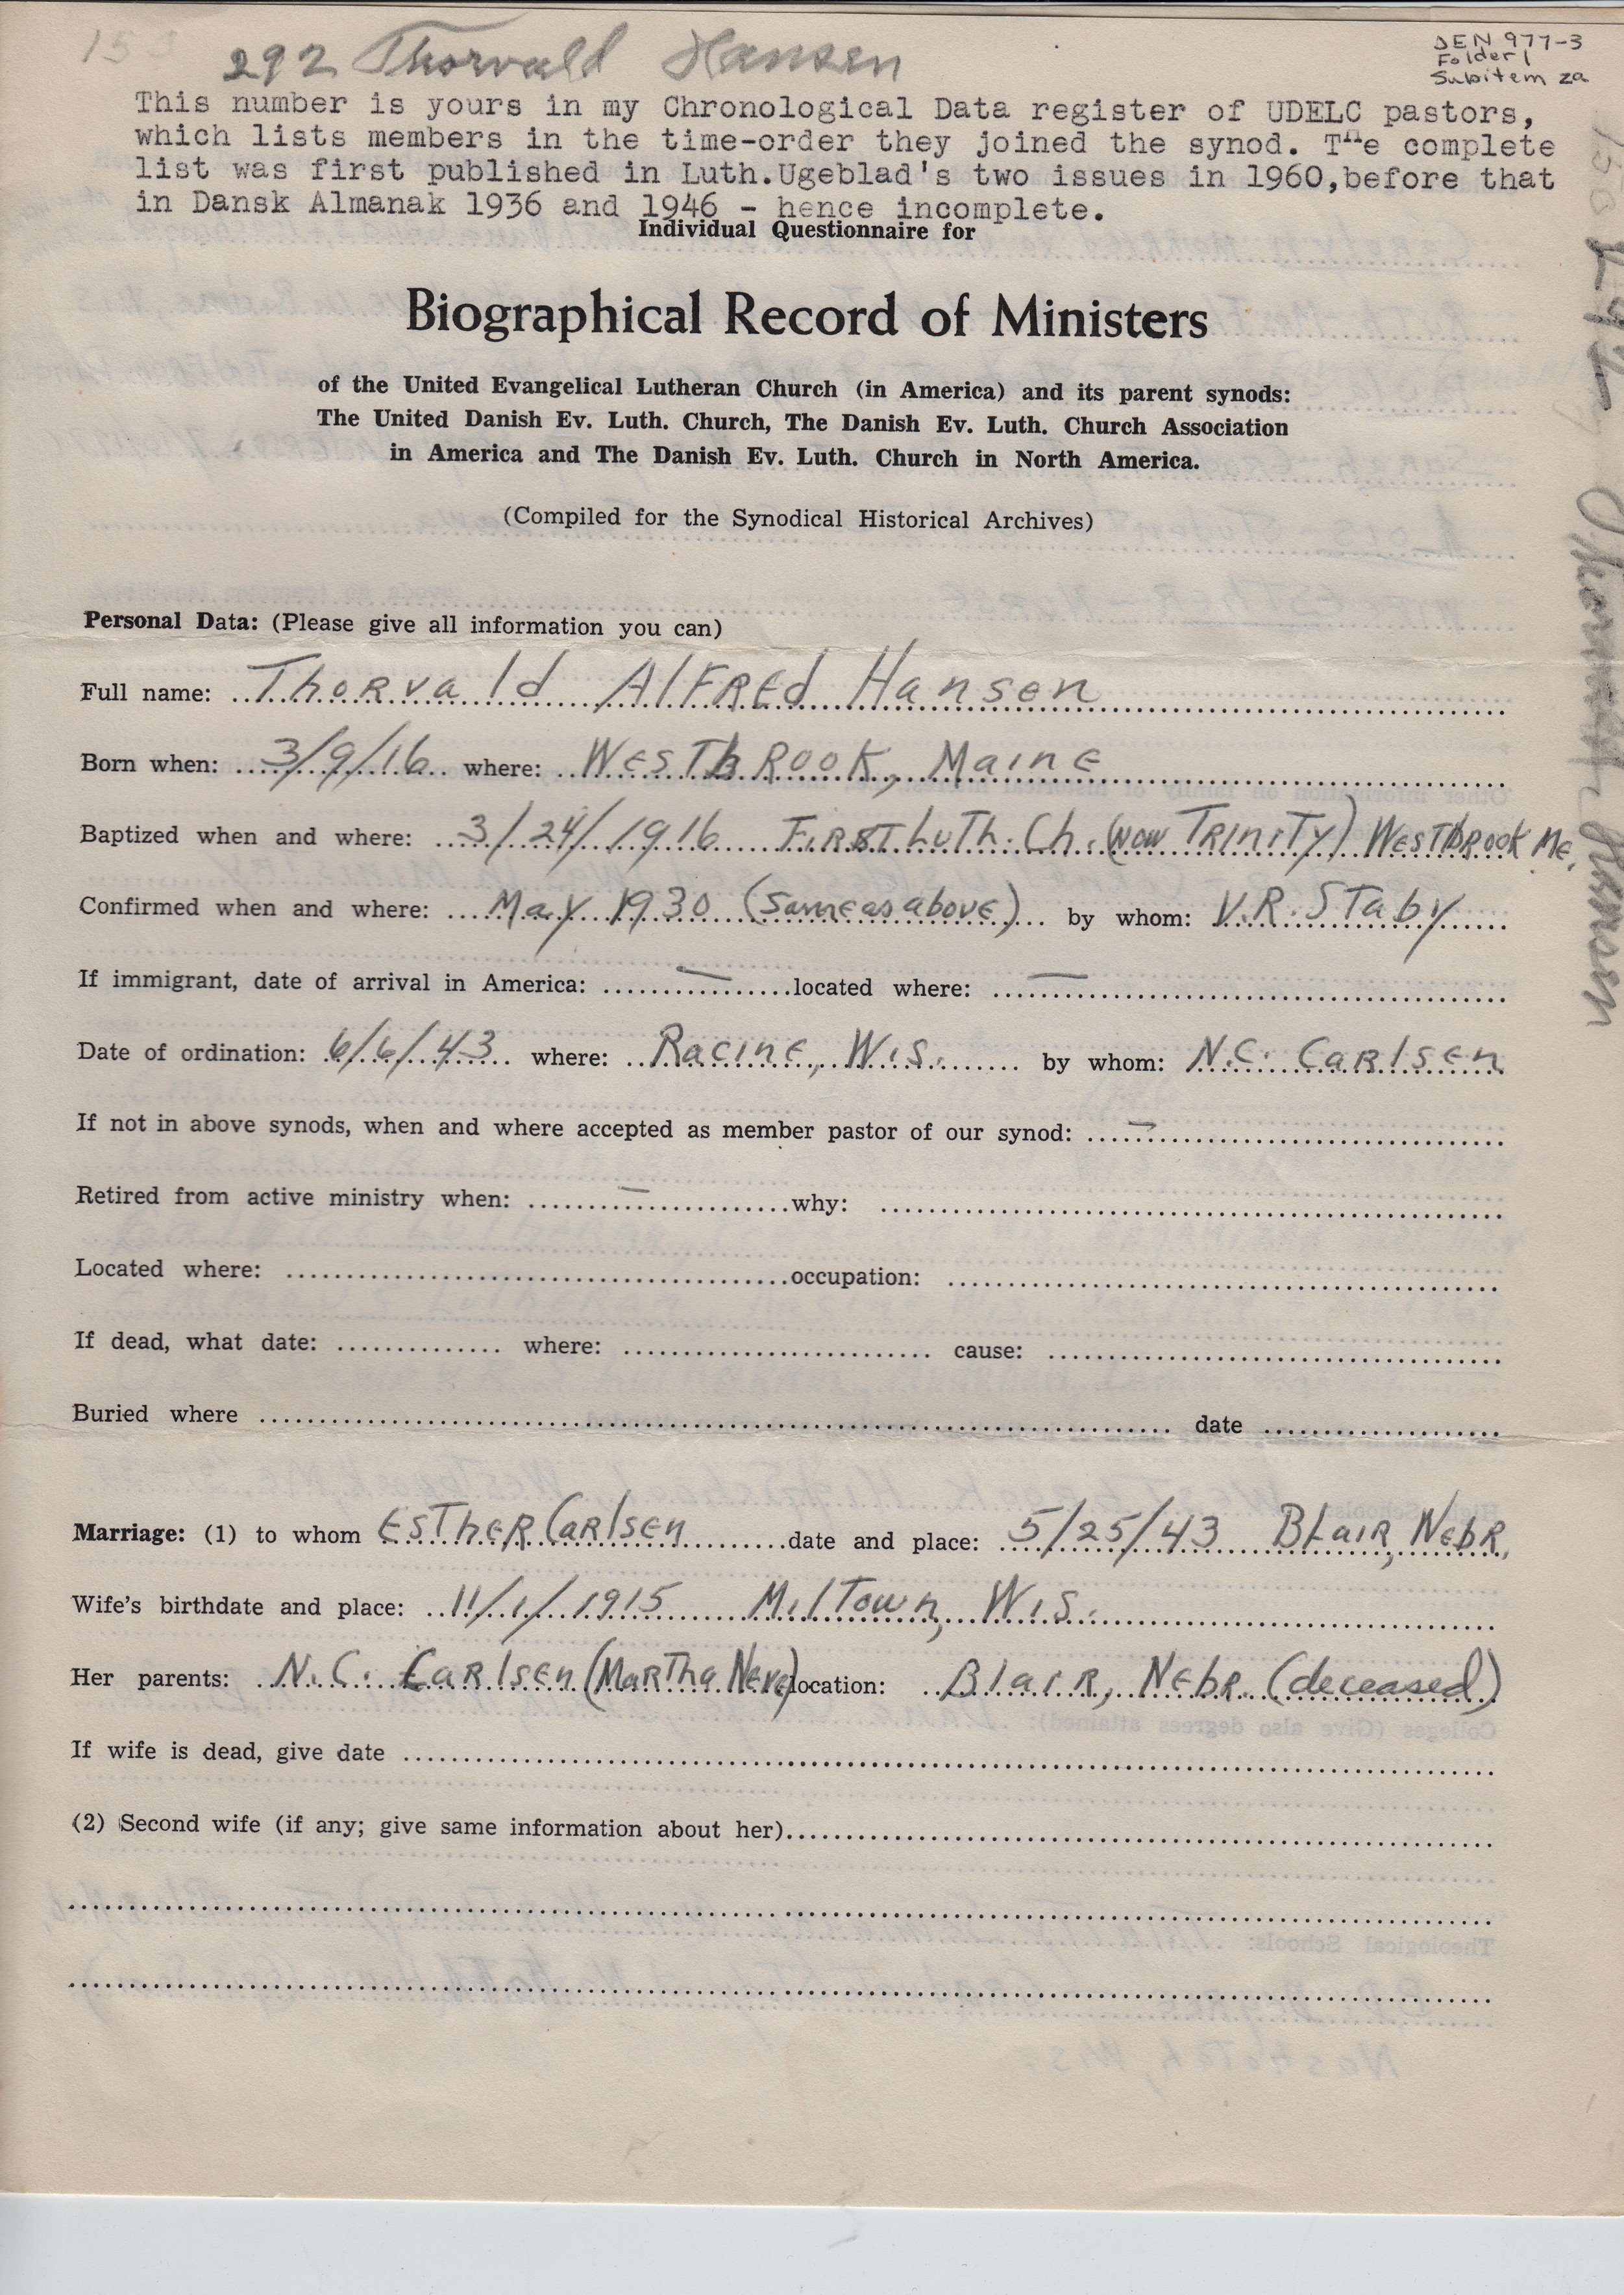 153
292 Thorvald Hansen
DEN 977-3
Folder 1
Subitem 2a
This number is yours in my Chronological Data register of UDELC pastors,
which lists members in the time-order they joined the synod. The complete
list was first published in Luth.Ugeblad's two issues in 1960,before that
in Dansk Almanak 1936 and 1946 - hence incomplete.
Individual Questionnaire for
Biographical Record of Ministers
of the United Evangelical Lutheran Church (in America) and its parent synods:
The United Danish Ev. Luth. Church, The Danish Ev. Luth. Church Association
in America and The Danish Ev. Luth. Church in North America.
(Compiled for the Synodical Historical Archives)
Personal Data: (Please give all information you can)
Full name: Thorvald Alfred Hansen
Born when: 3/9/16 where: Westbrook, Maine
Baptized when and where: 3/24/1916 First Luth. Ch. (now Trinity) Westbrook Me.
Confirmed when and where: May 1930 (same as above) by whom: V.R. Staby
If immigrant, date of arrival in America: — located where: —
Date of ordination: 6/6/43 where: Racine, Wis. by whom: N.C. Carlsen
If not in above synods, when and where accepted as member pastor of our synod: —
Retired from active ministry when: — why:
Located where: occupation:
If dead, what date: where: cause:
Buried where date
Marriage: (1) to whom Esther Carlsen date and place: 5/25/43 Blair, Nebr.
Wife's birthdate and place: 11/1/1915 Miltown, Wis.
Her parents: N.C. Carlsen (Martha Neve) location: Blair, Nebr. (deceased)
If wife is dead, give date
(2) Second wife (if any; give same information about her)
292 Thorvald Hansen